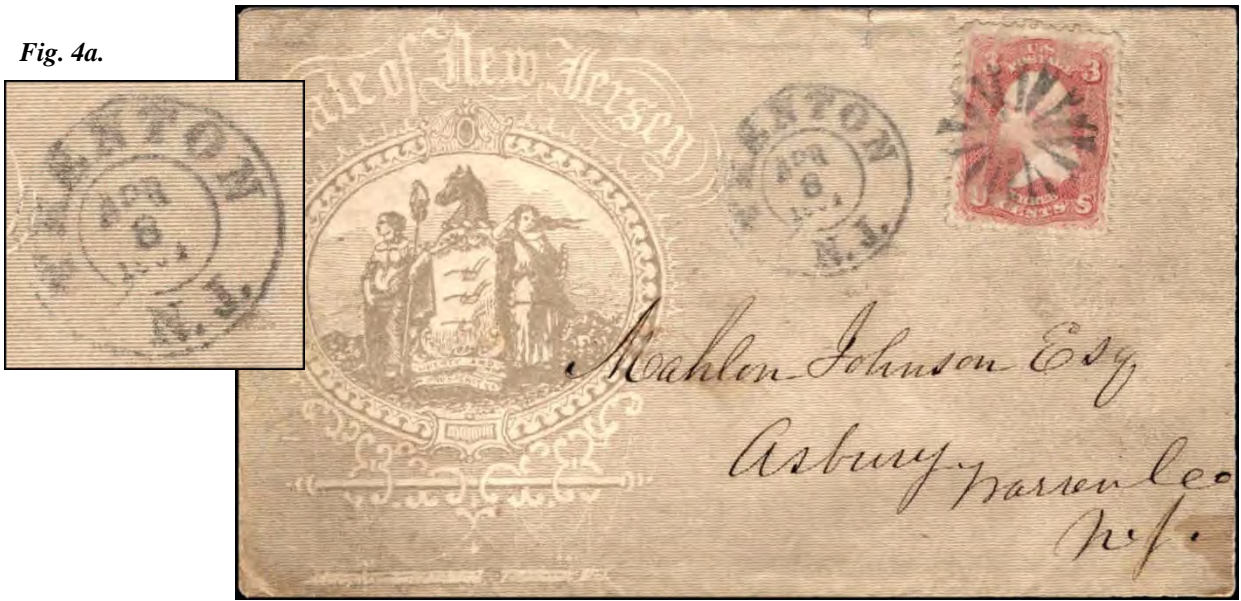 Fig. 4a.
TRENTON
APR
8
N.J.
State of New Jersey
TRENTON
APR
8
N.J.
3 3
U.S.
POSTAGE
CENTS
Mahlon Johnson Esq
Asbury Warren Co
N.J.